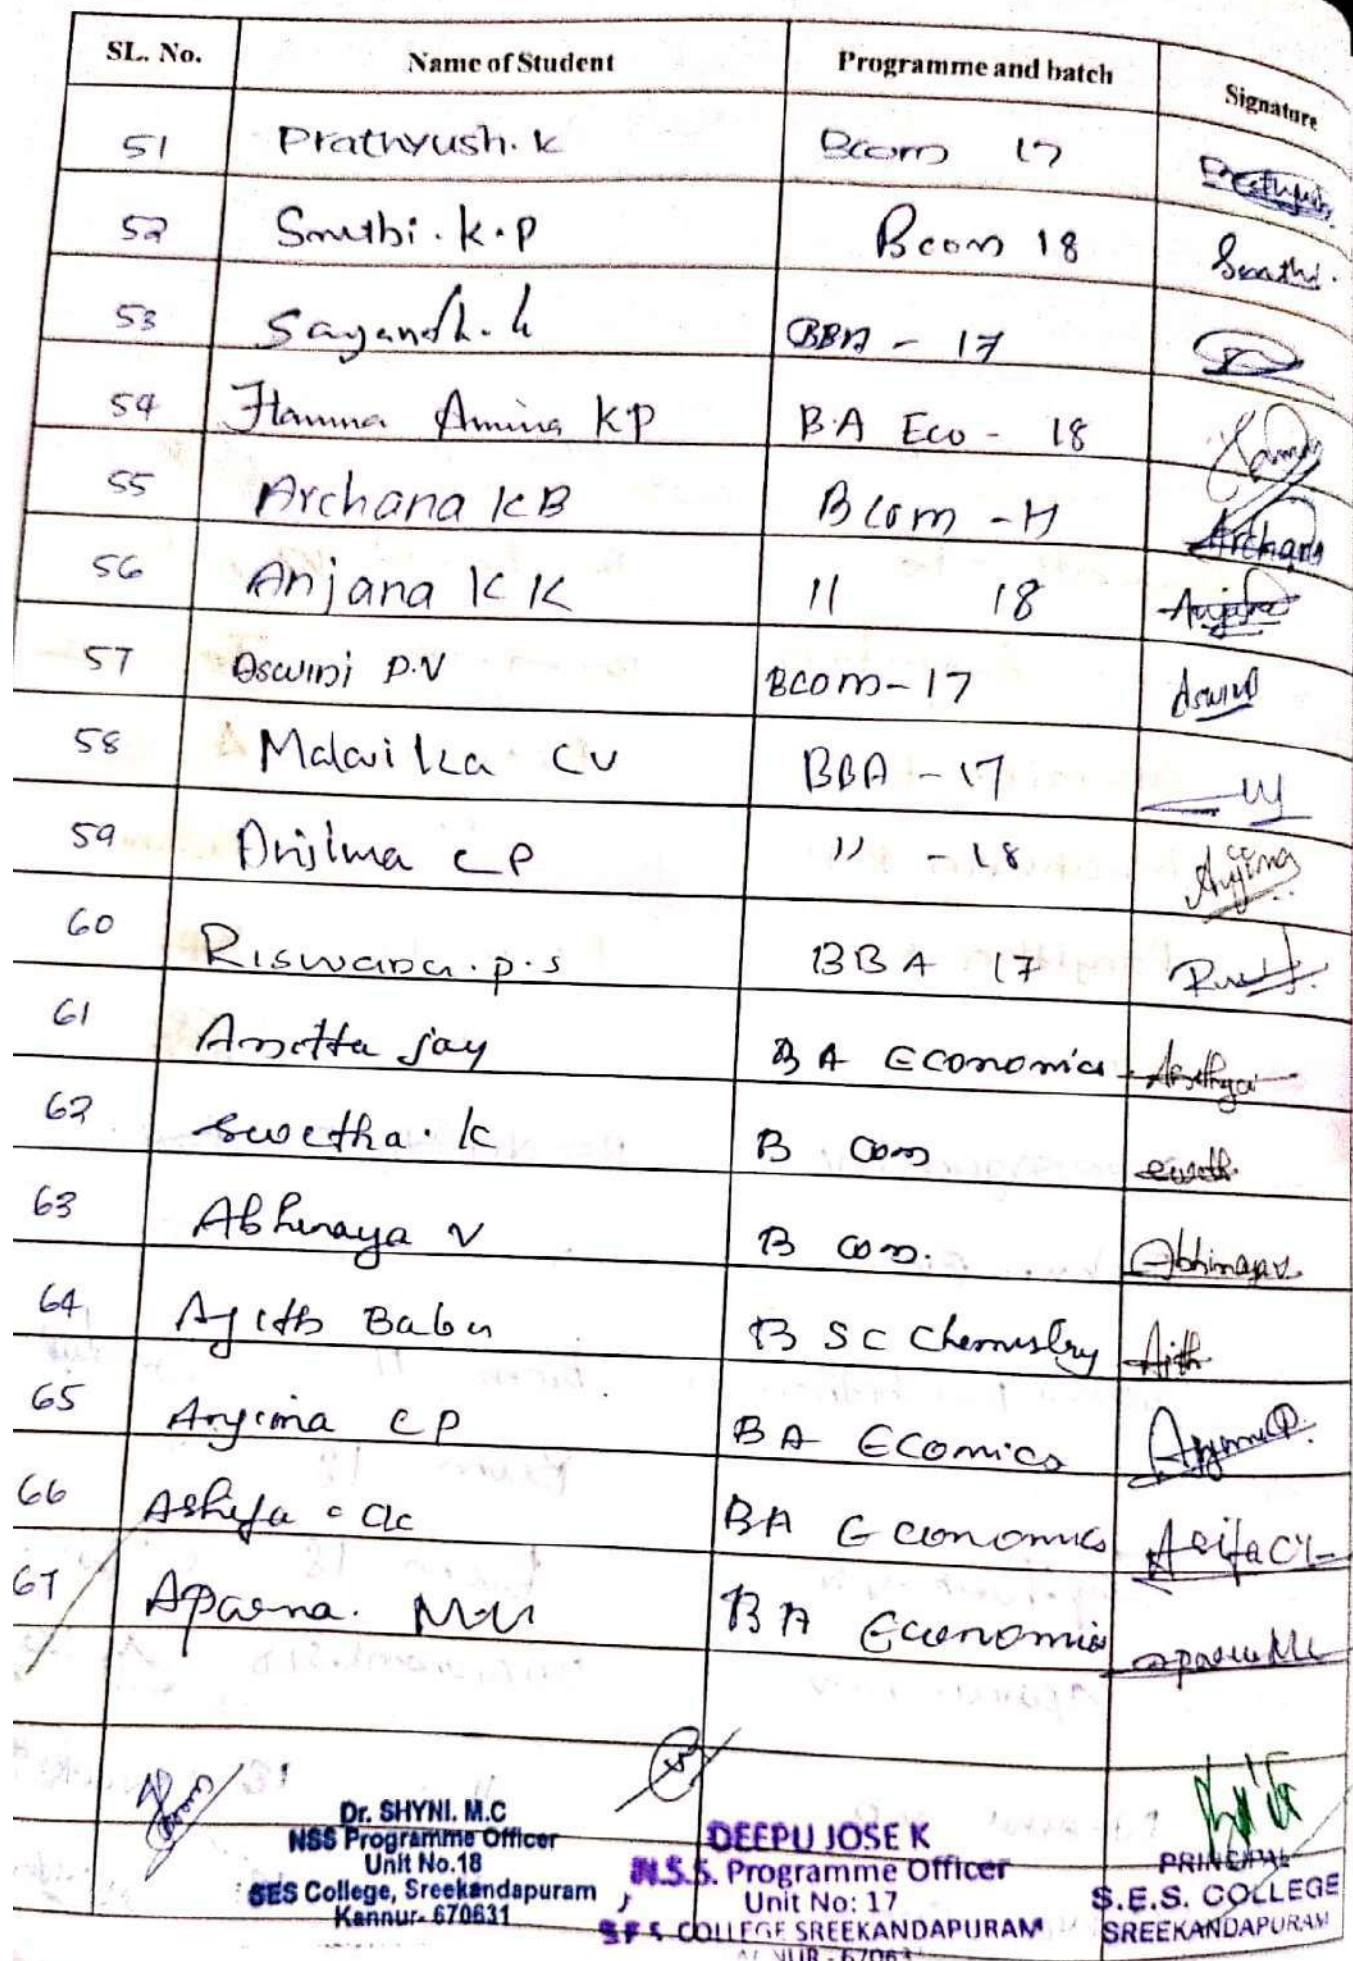 SL. No. Name of Student Programme and batch Signature
51 Prathyush. k Bcom 17
52 Smithi. k.p Bcom 18
53 Sayandh. k BBA - 17
54 Hamna Amina KP B.A Eco - 18
55 Archana KB Bcom - 17 Archana
56 Anjana KK 11 18 Anjana
57 Aswini P.V Bcom - 17 Aswini
58 Malavika CV BBA - 17
59 Anjima CP 11 - 18 Anjima
60 Riswana. p. s BBA 17
61 Anitta Jay BA Economics
62 Swetha. K B com
63 Abhinaya V B com. Abhinaya
64 Ajith Babu B SC Chemistry Ajith
65 Anjima CP BA Ecomics
66 BA Economics
67 Aparna. BA Economics
Dr. SHYNI. M.C
NSS Programme Officer
Unit No.18
SES College, Sreekandapuram
Kannur- 670631
DEEPU JOSE K
N.S.S. Programme Officer
Unit No: 17
S.E.S COLLEGE SREEKANDAPURAM
PRINCIPAL
S.E.S. COLLEGE
SREEKANDAPURAM